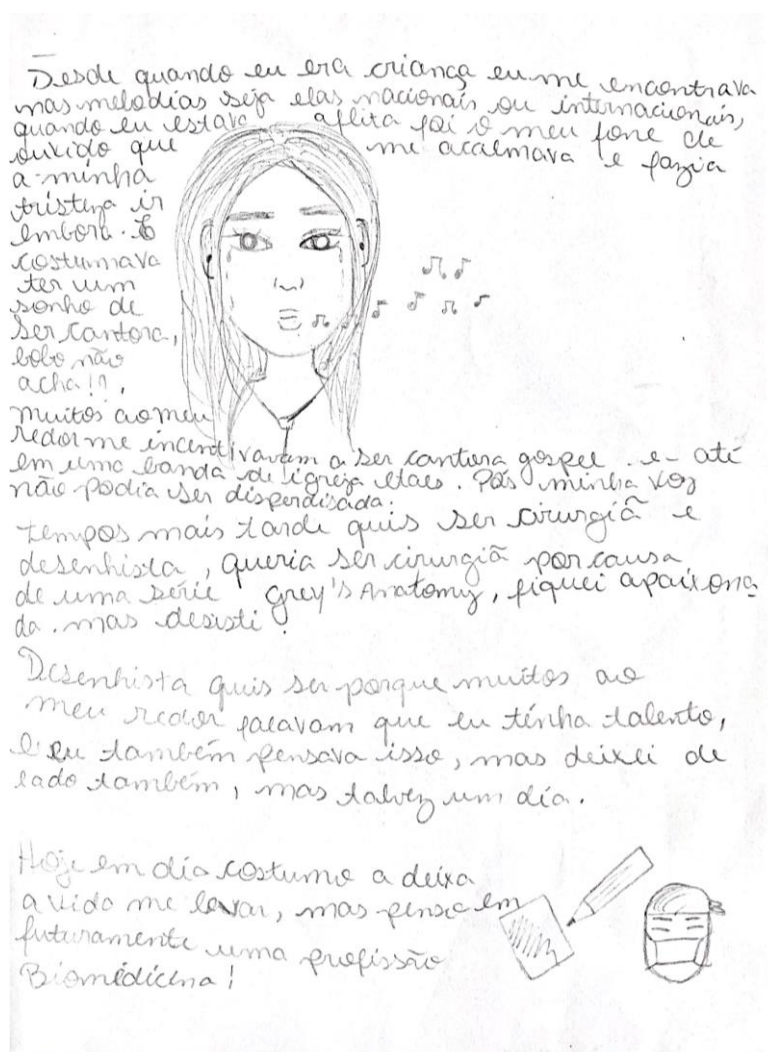 Desde quando eu era criança eu me encontrava
nas melodias seja elas nacionais ou internacionais,
quando eu estava aflita foi o meu fone de
ouvido que me acalmava e fazia
a minha
tristeza ir
embora. E
costumava
ter um
sonho de
ser cantora,
bobo não
acha!?,
muitos ao meu
redor me incentivavam a ser cantora gospel e até
em uma banda de igreja etc. Pois minha voz
não podia ser disperdisada.
tempos mais tarde quis ser cirurgiã e
desenhista, queria ser cirurgiã por causa
de uma série Grey's Anatomy, fiquei apaixona
da. mas desisti!
Desenhista quis ser porque muitos ao
meu redor falavam que eu tinha talento,
e eu também pensava isso, mas deixei de
lado também, mas talvez um dia.
Hoje em dia costumo a deixa
a vida me levar, mas penso em
futuramente uma profissão
Biomédicina!